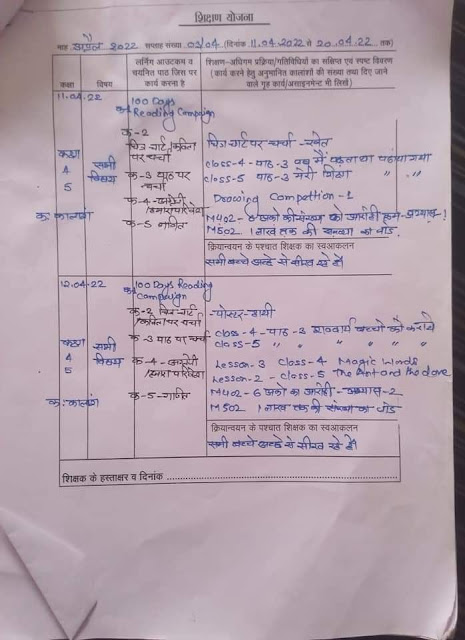 शिक्षण योजना
माह अप्रैल 2022 सप्ताह संख्या 03/04 (दिनांक 11.04.2022 से 20.04.22 तक)
कक्षा
विषय
लर्निंग आउटकम व
चयनित पाठ जिस पर
कार्य करना है
शिक्षण-अधिगम प्रक्रिया/गतिविधियों का संक्षिप्त एवं स्पष्ट विवरण
(कार्य करने हेतु अनुमानित कालांशों की संख्या तथा दिए जाने
वाले गृह कार्य/असाइनमेन्ट भी लिखें)
11.04.22
100 Days
Reading Campaign
क-2
चित्र चार्ट/कविता
पर चर्चा
चित्र चार्ट पर चर्चा
कक्षा
4
5
सभी
विषय
क-3 पाठ पर
चर्चा
class-4-पाठ-3
class-5 पाठ-3
क-4-अंग्रेजी
Drowing Compettion-1
क-5 गणित
M402-6 अंको की संख्या का आरोही क्रम
M502 1 लाख तक की संख्या का जोड़
क्रियान्वयन के पश्चात शिक्षक का स्वआकलन
सभी बच्चे अच्छे से सीख रहे है।
12.04.22
100 Days Reading
Campaign
क-2 चित्र-चार्ट
/कविता पर चर्चा
क-3 पाठ पर चर्चा
class-4-पाठ-3 शब्दार्थ बच्चों को कराये
class-5 " " " "
कक्षा
4
5
सभी
विषय
क-4-अंग्रेजी
Lesson-3 Class-4 Magic Winds
Lesson-2-Class-5 The Ant and the dove
क-5-गणित
M402-6 अंको का आरोही-अभ्यास-2
M502 1 लाख तक की संख्या का जोड़
क्रियान्वयन के पश्चात शिक्षक का स्वआकलन
सभी बच्चे अच्छे से सीख रहे है।
शिक्षक के हस्ताक्षर व दिनांक